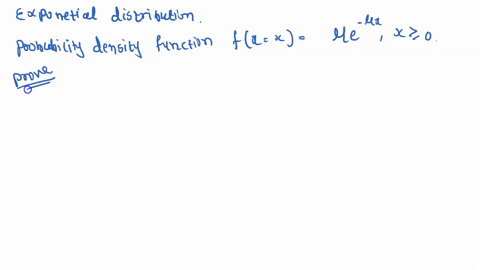 Exponetial distribution.
Probability density function f(x=x) = μe^{-μx}, x ≥ 0.
prove